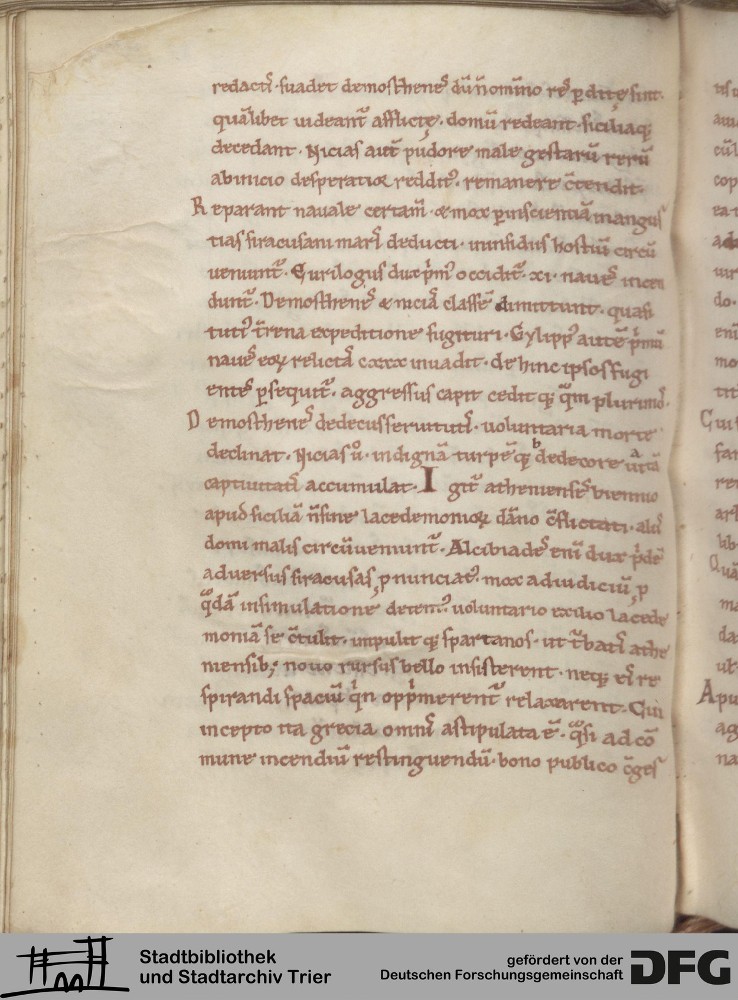 redacti ̇ suadet demosthenes dū n̄ om̄ino res ꝑdite sint ̇
quālibet uideant᷑ afflicte ̇ domū redeant ̇ siciliaqꝫ
decedant ̇ Nicias aut̄ pudore male gestarū rerū
abinicio desperatior reddit᷒ ̇ remanere c̄tendit ̇
Reparant nauale certam̄ ̇ & mox ꝑ inscientiā in angus
tias siracusani maris deducti ̇ in insidiis hostiū circū
ueniunt᷑ ̇ Eurilogus dux pͥm᷒ occidit᷑ ̇ xi ̇ naues incen
dunt᷑ ̇ Demosthenes & niciā classē dimittunt ̇ quasi
tuti᷒ t̄rena expeditione fugituri ̇ Gylipp᷒ autē pͥmū
naues eoꝝ relictā cxxx inuadit ̇ dehinc ipsos fugi
entes ꝑsequit᷑ ̇ aggressus capit ceditqꝫ qͣm plurimos ̇
Demosthenes dedecus seruitutis ̇ uoluntaria morte
declinat ̇ Nicias u̇ ̇ indignā turpēqꝫ dedecore uitā
captiuitatis accumulat ̇ Igit᷑ athenienses biennio
apud siciliā n̄ sine lacedemonioꝝ dāno c̄flictati ̇ aliis
domi malis circūueniunt᷑ ̇ Alcibiades eni dux pͥdē
aduersus siracusas ꝓnunciat᷒ ̇ mox ad iudiciū ꝓ
qͣdā insimulatione detent᷒ uoluntario exilio lacede
moniā se c̄tulit ̇ impulitqꝫ spartanos ̇ ut t̄batis athe
niensibꝫ nouo rursus bello insisterent ̇ neqꝫ eis re
spirandi spaciū qͥn oppͥmerent᷑ relaxarent ̇ Cui
incepto ita grecia omnis astipulata ē ̇ qͣsi ad cō
mune incendiū restinguendū ̇ bono publico c̄ges
Stadtbibliothek
und Stadtarchiv Trier
gefördert von der
Deutschen Forschungsgemeinschaft
DFG